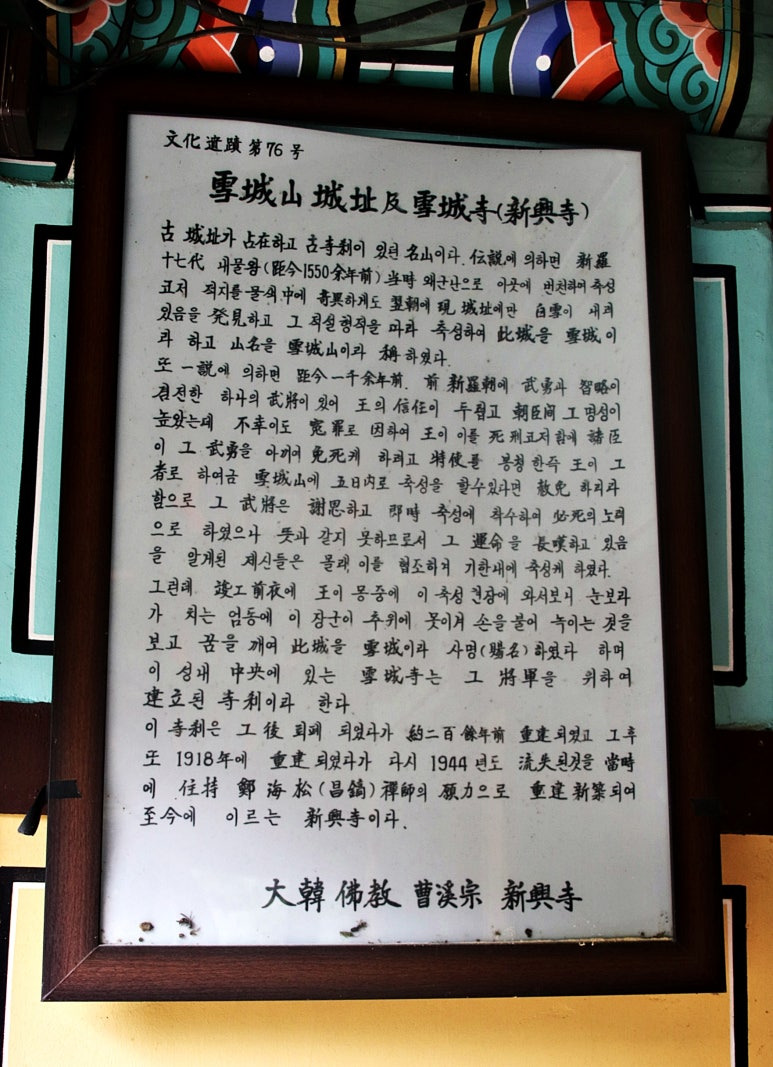 文化遺蹟 第76号
雪城山 城址 及 雪城寺(新興寺)
古 城址가 占在하고 古寺刹이 있던 名山이다. 伝説에 의하면 新羅
十七代 내물왕(距今1550余年前) 当時 왜군난으로 이곳에 번천하여 축성
코저 적지를 물색 中에 奇異하게도 翌朝에 現 城址에만 白雪이 내려
있음을 発見하고 그 적설 형적을 따라 축성하여 此城을 雪城이
라 하고 山名을 雪城山이라 稱하였다.
또 一説에 의하면 距今一千余年前. 前 新羅朝에 武勇과 智略이
겸전한 하나의 武將이 있어 王의 信任이 두텁고 朝臣间 그 명성이
높았는데 不幸이도 寃罪로 因하여 王이 이를 死刑코저 함에 諸臣
이 그 武勇을 아끼여 免死케 하려고 特使를 봉청한즉 王이 그
者로 하여금 雪城山에 五日内로 축성을 할수있다면 赦免 하리라
함으로 그 武將은 謝恩하고 即時 축성에 착수하여 必死의 노력
으로 하였으나 뜻과 같지 못하므로서 그 運命을 長嘆하고 있음
을 알게된 제신들은 몰래 이를 협조하여 기한내에 축성케 하였다.
그런데 竣工前夜에 王이 몽중에 이 축성 현장에 와서보니 눈보라
가 치는 엄동에 이 장군이 추위에 못이겨 손을 불어 녹이는 것을
보고 꿈을 깨여 此城을 雪城이라 사명(賜名)하였다 하며
이 성내 中央에 있는 雪城寺는 그 將軍을 위하여
建立된 寺刹이라 한다.
이 寺刹은 그 後 퇴폐 되였다가 約二百餘年前 重建되였고 그후
또 1918年에 重建되였다가 다시 1944년도 流失된것을 當時
에 住持 鄭海松(昌鎬)禪師의 願力으로 重建新築되여
至今에 이르는 新興寺이다.
大韓佛教 曹溪宗 新興寺